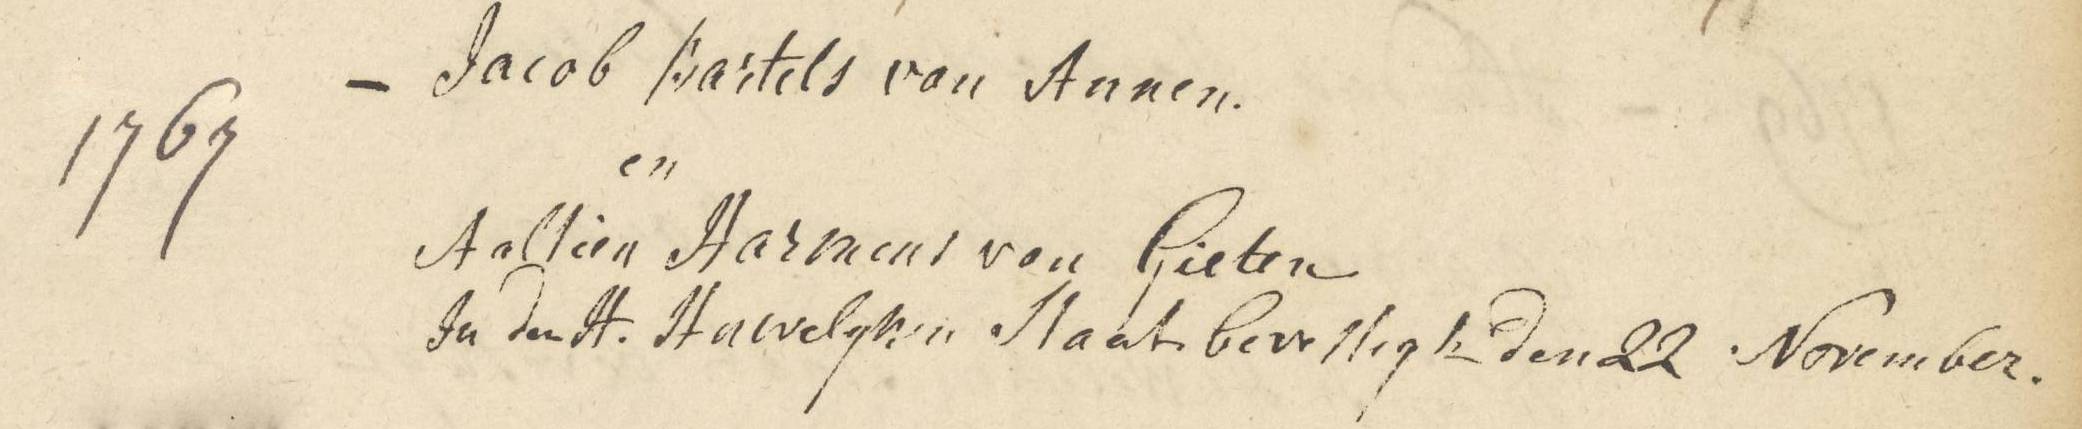 1767 - Jacob Bartels van Annen.
en
Aaltien Harmens van Gieten
In den H. Huwelyken Staat bevestigt den 22 November.